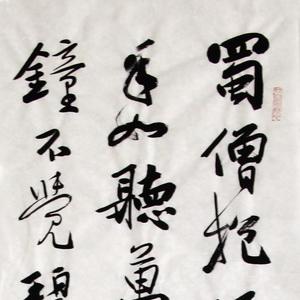 蜀僧抱
手如聽萬
鐘不覺碧